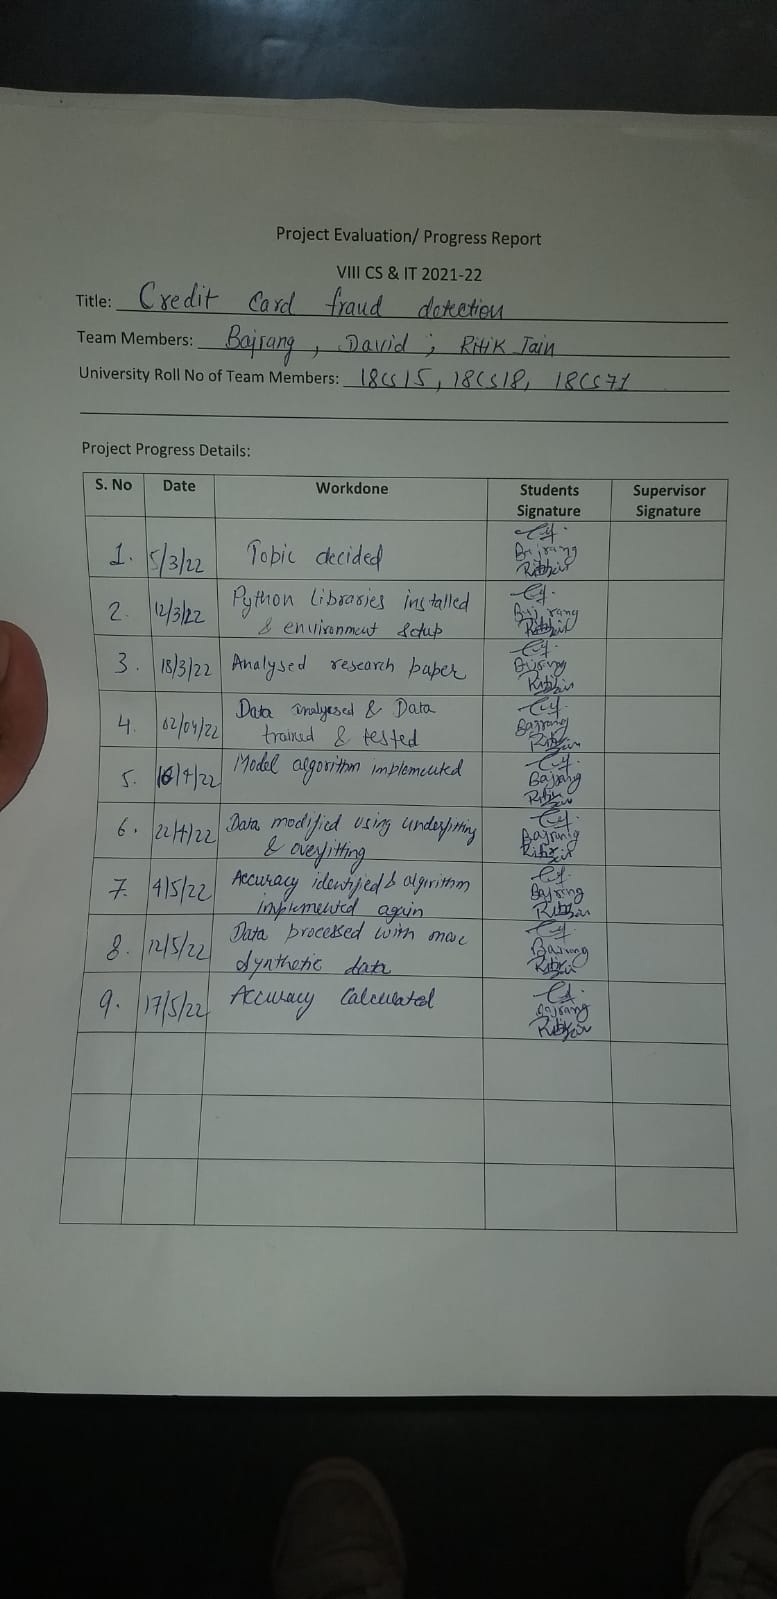 Project Evaluation/ Progress Report
VIII CS & IT 2021-22
Title: Credit Card fraud detection
Team Members: Bajrang, David, Ritik Jain
University Roll No of Team Members: 18CS15, 18CS18, 18CS71
Project Progress Details:
S. No Date Workdone Students Signature Supervisor Signature
1. 5/3/22 Topic decided
Bajrang
2. 12/3/22 Python libraries installed
& environment setup
Bajrang
3. 18/3/22 Analysed research paper
4. 02/04/22 Data analysed & Data
trained & tested
Bajrang
5. 16/4/22 Model algorithm implemented
Bajrang
6. 22/4/22 Data modified using underfitting
& overfitting
Bajrang
7. 4/5/22 Accuracy identified & algorithm
implemented again
Bajrang
8. 12/5/22 Data processed with more
synthetic data
Bajrang
9. 17/5/22 Accuracy Calculated
Bajrang